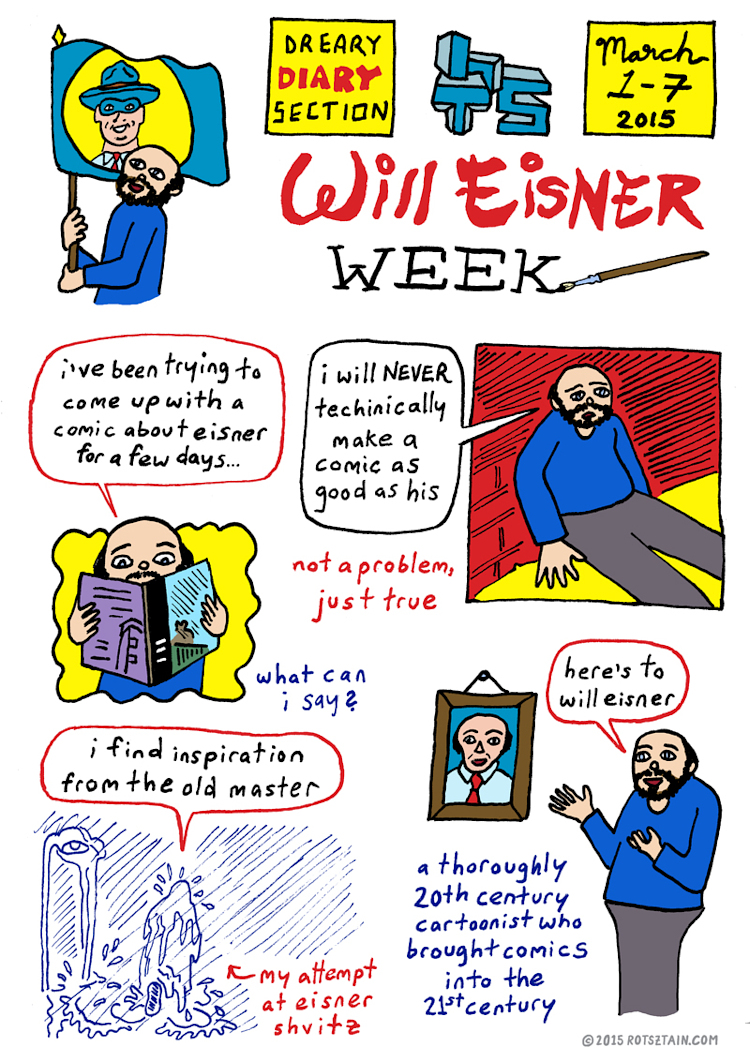 DREARY
DIARY
SECTION
ITS
March
1-7
2015
Will EisNER
WEEK
i've been trying to
come up with a
comic about eisner
for a few days...
i will NEVER
techinically
make a
comic as
good as his
not a problem,
just true
what can
i say?
here's to
will eisner
i find inspiration
from the old master
my attempt
at eisner
shvitz
a thoroughly
20th century
cartoonist who
brought comics
into the
21st century
© 2015 ROTSZTAIN.COM